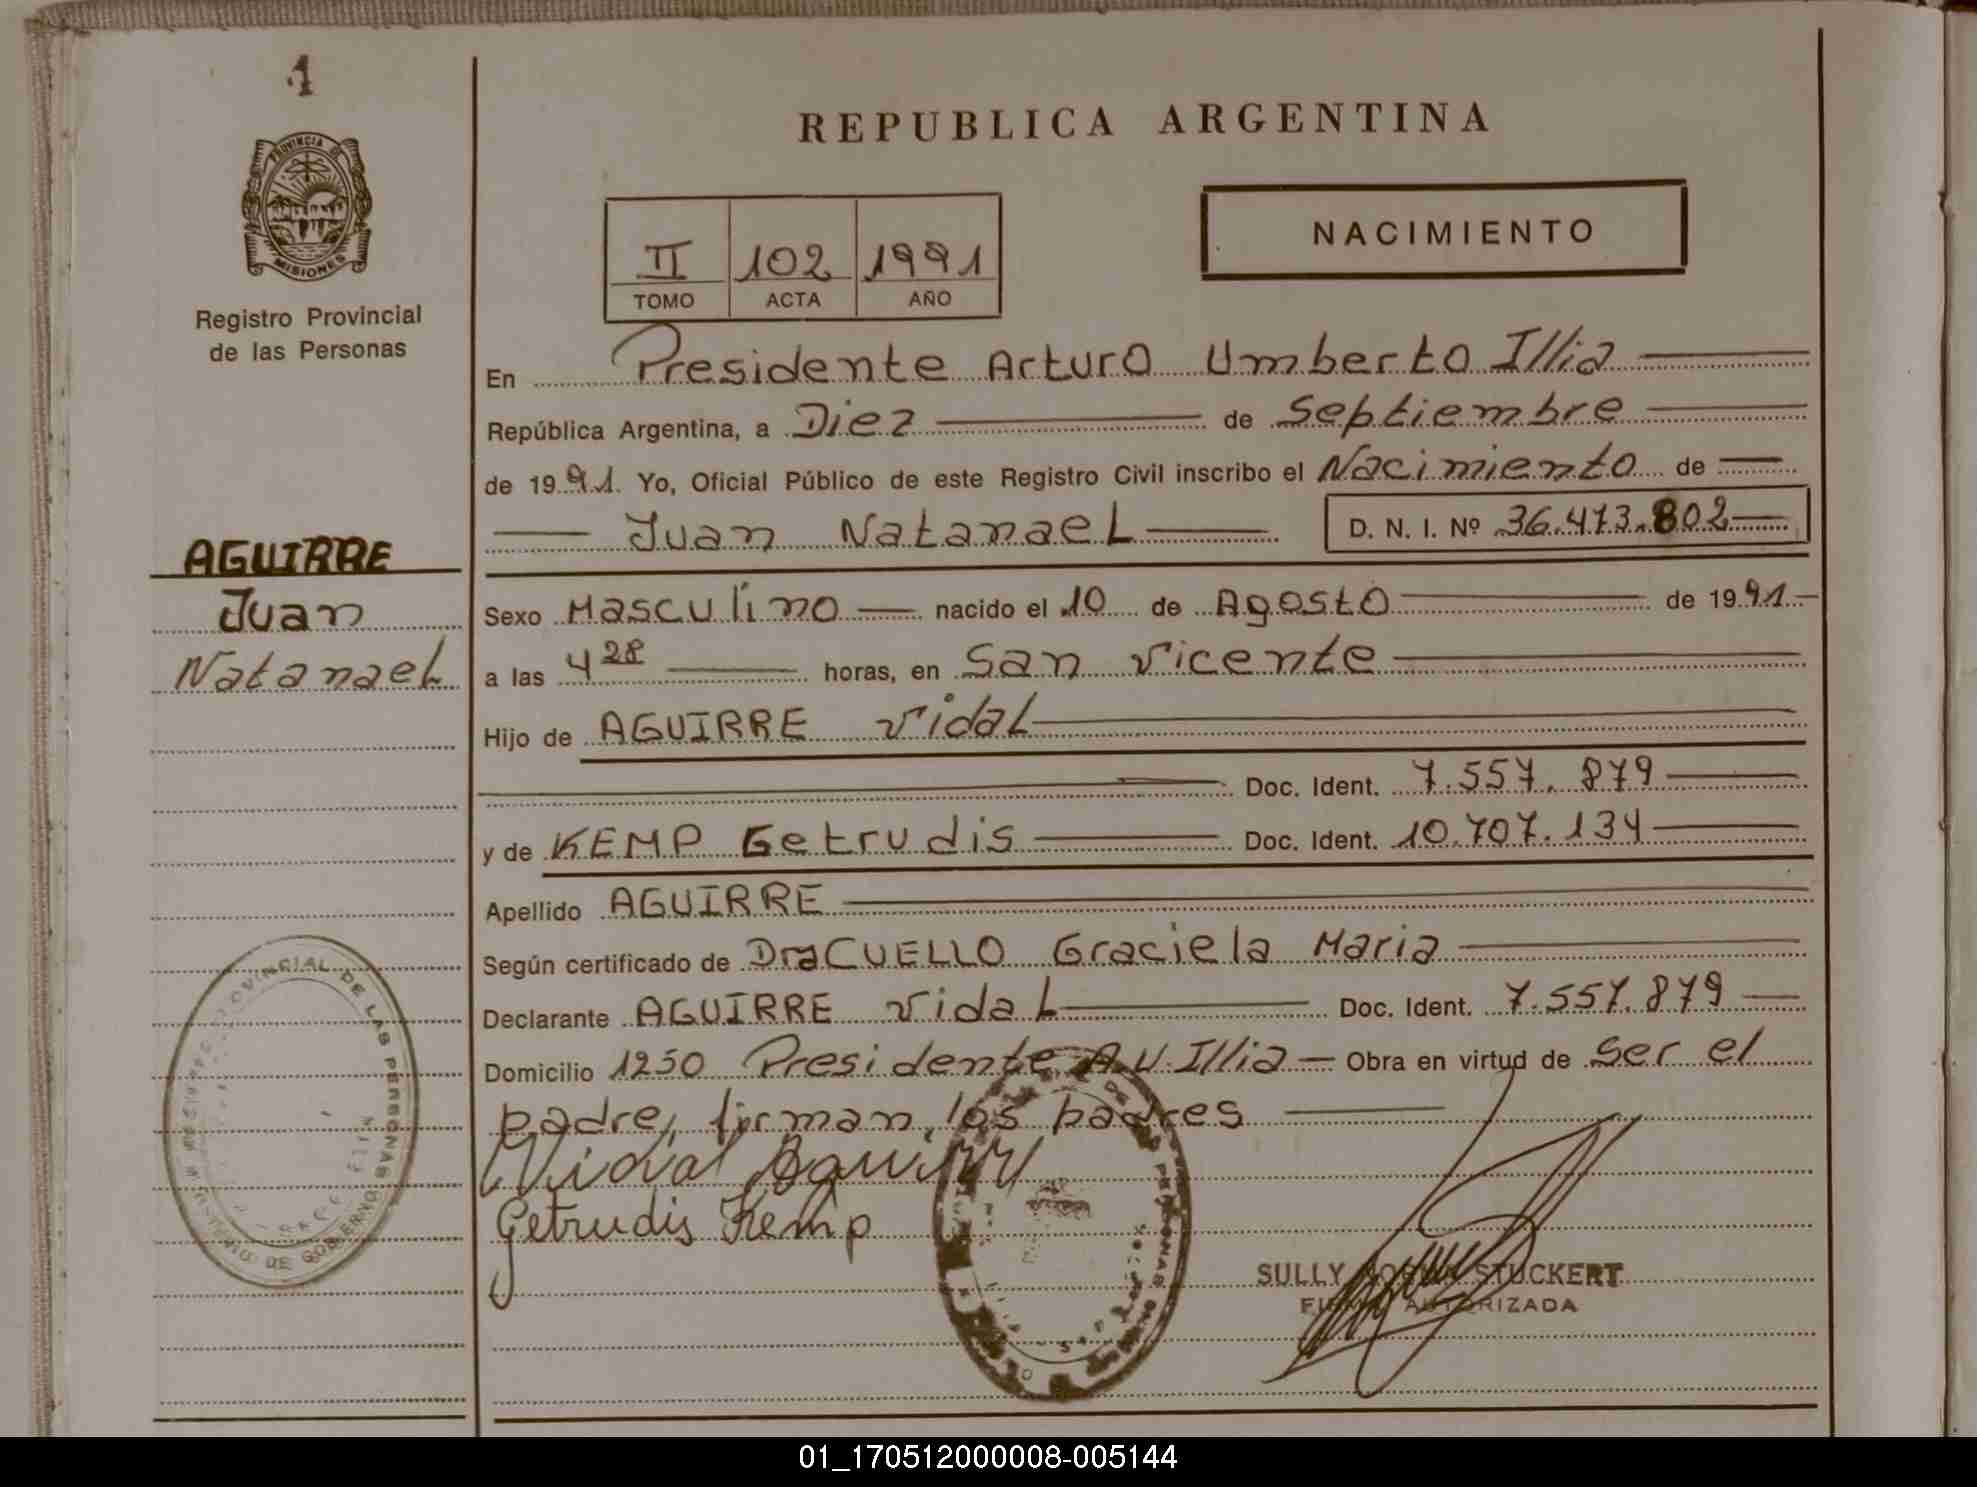 1
PROVINCIA DE
MISIONES
Registro Provincial
de las Personas
AGUIRRE
Juan
Natanael
REPUBLICA ARGENTINA
II 102 1991
TOMO ACTA AÑO
NACIMIENTO
En Presidente Arturo Umberto Illia
República Argentina, a Diez de Septiembre
de 1991. Yo, Oficial Público de este Registro Civil inscribo el Nacimiento de
Juan Natanael D. N. I. Nº 36.473.802
Sexo Masculino nacido el 10 de Agosto de 1991
a las 4 28 horas, en San Vicente
Hijo de AGUIRRE Vidal
Doc. Ident. 7.557.879
y de KEMP Getrudis Doc. Ident. 10.707.134
Apellido AGUIRRE
Según certificado de Dra CUELLO Graciela Maria
Declarante AGUIRRE Vidal Doc. Ident. 7.557.879
Domicilio 1250 Presidente A.U. Illia Obra en virtud de ser el
padre, firman los padres
Vidal Aguirr
Getrudis Kemp
SULLY STUCKERT
FIRMA AUTORIZADA
PROVINCIAL DE LAS PERSONAS
DE GOBIERNO
01_170512000008-005144